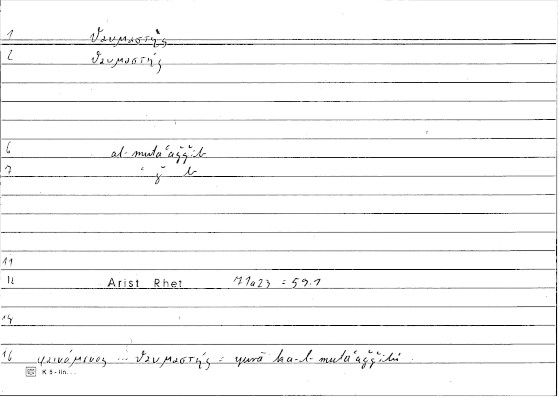 1 θαυμαστὴς
2 θαυμαστής
6 al-mutaʿaǧǧib
7 ʿ ǧ b
11
12 Arist Rhet 71a23 = 59.1
14
16 φαινόμενος ... θαυμαστής = yurā ka-l-mutaʿaǧǧibi